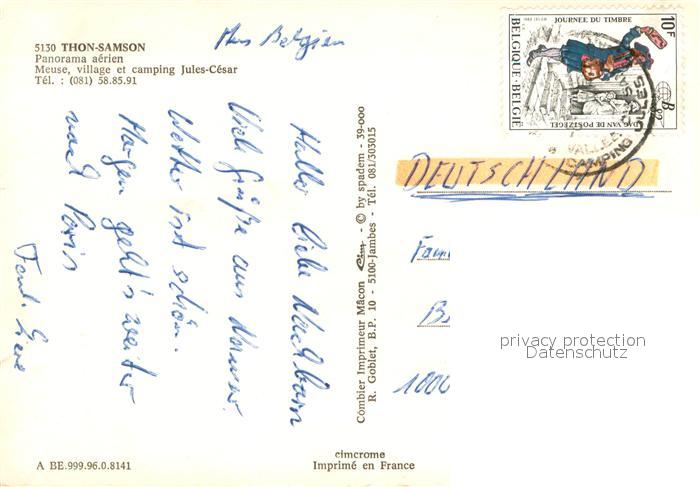 5130 THON-SAMSON
Panorama aérien
Meuse, village et camping Jules-César
Tél. : (081) 58.85.91
Aus Belgien
Hallo liebe Nachbarn
Viele Grüße aus
Wetter ist schön.
Morgen geht's weiter
nach Paris
Combier Imprimeur Mâcon Cim - © by spadem - 39-000
R. Goblet, B.P. 10 - 5100-Jambes - Tél. 081/303015
10F
JOURNEE DU TIMBRE
BELGIQUE·BELGIE
DAG VAN DE POSTZEGEL
B
82
CAMPING JULES
DEUTSCHLAND
Fam
1000
privacy protection
Datenschutz
cimcrome
Imprimé en France
A BE.999.96.0.8141